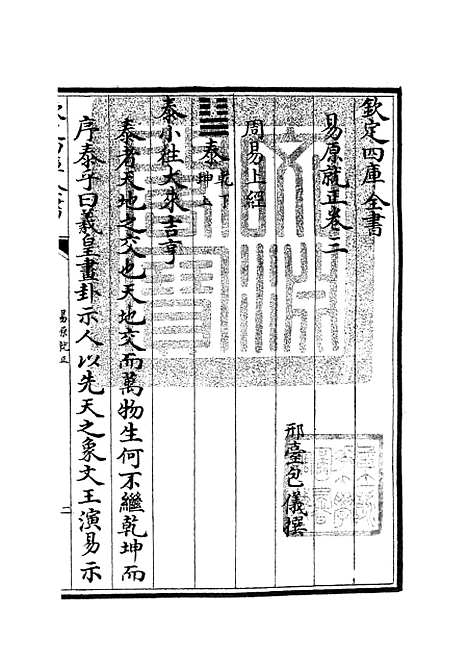 欽定四庫全書
易原就正卷三
邢臺包儀撰
周易上經
泰 乾下 坤上
泰小往大來吉亨
泰者天地之交也天地交而萬物生何不繼乾坤而
序泰乎曰羲皇畫卦示人以先天之象文王演易示
易原就正